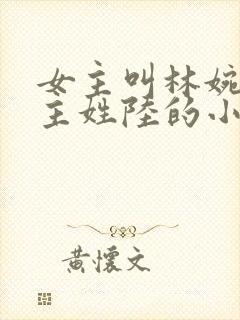 女主叫林婉
主姓陸的小
黃懷文